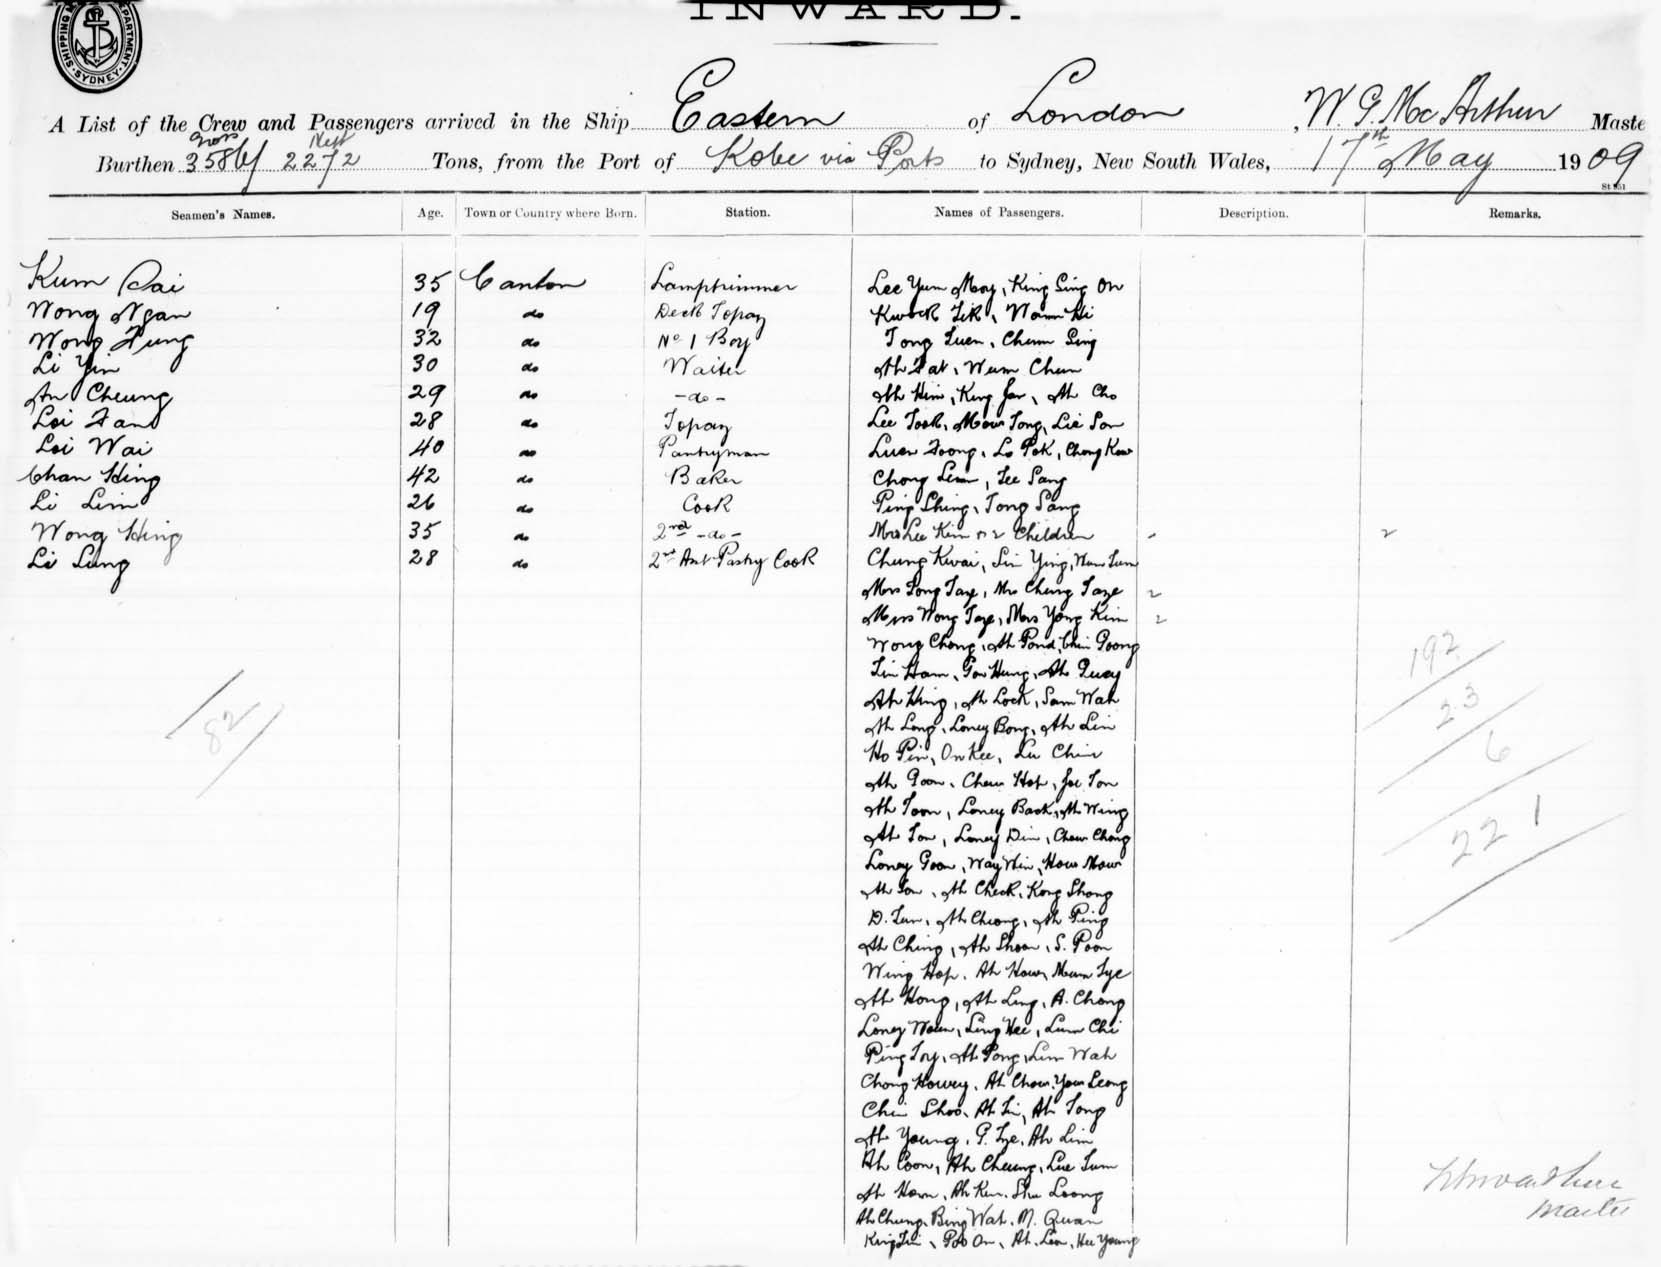 INWARD.
SHIPPING DEPARTMENT. SYDNEY
A List of the Crew and Passengers arrived in the Ship Eastern of London, W. G. McArthur Maste
Gross Nett
Burthen 3586/ 2272 Tons, from the Port of Kobe via Ports to Sydney, New South Wales, 17th May 1909
Seamen's Names. Age. Town or Country where Born. Station. Names of Passengers. Description. Remarks.
Kum Sai 35 Canton Lamptrimmer Lee Yum Moy, King Sing On
Wong Ngan 19 do Deck Topaz Kwock
Wong Fung 32 do No 1 Boy Tong Luen, Chum Sing
Li Yin 30 do Waiter Ah Fat, Wum Chun
An Cheung 29 do -do- Ah Him, King Jar, Ah Cho
Loi Fan 28 do Topaz Lee Took, Mow Tong, Lie Son
Loi Wai 40 do Pantryman Luen Foong, Lo Pok, Chong Kow
Chan Hing 42 do Baker Chong Lem, Lee Sang
Li Lim 26 do Cook Ping Shing, Tong Sang
Wong Hing 35 do 2nd -do- Mrs Lee Kim & 2 Children - 2
Li Lung 28 do 2nd Asst Pastry Cook Chung Kwai, Lin Ying,
Mrs Tong Taze, Mrs Chung Taze 2
Mrs Wong Taze, Mrs Yong Kim 2
Wong Chong, Ah Pond, Chin Goong
Lin Ham, Gon Hung, Ah Quay
Ah Hing, Ah Lock, Sam Wah
Ah Long, Loney Bong, Ah Lin
Ho Pin, On Kee, Lu Chin
Ah Goon, Chew Hop, Joe Ton
Ah Toon, Loney Back, Ah Wing
Ah Tow, Loney Din, Chow Chong
Loney Goon, Way Hin, How Mow
Ah Son, Ah Check, Kong Shong
D. Lun, Ah Cheong, Ah Ping
Ah Ching, Ah Shoon, S. Poon
Wing Hop, Ah How, Mum Lye
Ah Hong, Ah Ling, A. Chong
Loney Waen, Ling Hee, Lum Chi
Ping Toy, Ah Pong, Lim Wah
Chong Howey, Ah Chow, Yow Leong
Chin Shoo, Ah Li, Ah Tong
Ah Young, G. Lye, Ah Lim
Ah Coon, Ah Cheung, Lue Tum
Ah Hown, Ah Kew, Shu Loong
Ah Chung, Bing Wah, M. Quan
King Lin, Poo On, Ah Leon, Hee Young
82
192
23
6
221
Master